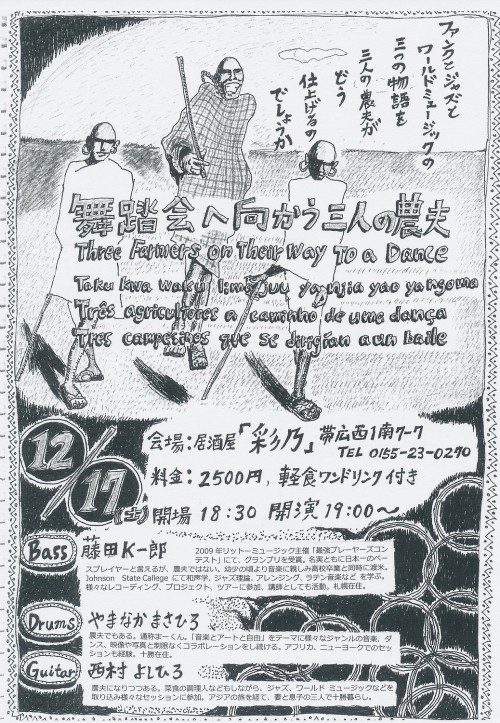 ファンクとジャズと
ワールドミュージックの
三つの物語を
三人の農夫が
どう
仕上げるの
でしょうか
舞踏会へ向かう三人の農夫
Three Farmers on Their Way To a Dance
Três agricultores a caminho de uma dança
Tres campesinos que se dirigían a un baile
12/17(土)
会場:居酒屋「彩乃」帯広西1南7-7
TEL 0155-23-0270
料金:2500円、軽食ワンドリンク付き
開場 18:30 開演 19:00〜
Bass 藤田K一郎
2009年リットーミュージック主催「最強プレーヤーズコン
テスト」にて、グランプリを受賞。名実ともに日本一のベー
スプレイヤーと言えるが、農夫ではない。幼少の頃より音楽に親しみ高校卒業と同時に渡米。
Johnson State Callege にて和声学、ジャズ理論、アレンジング、ラテン音楽など を学ぶ。
様々なレコーディング、プロジェクト、ツアーに参加、講師としても活動。札幌在住。
Drums やまなかまさひろ
農夫でもある。通称まーくん。「音楽とアートと自由」をテーマに様々なジャンルの音楽、ダ
ンス、映像や写真と制限なくコラボレーションをし続ける。アフリカ、ニューヨークでのセッ
ションも経験。十勝在住。
Guitar 西村よしひろ
農夫になりつつある。菜食の調理人などもしながら、ジャズ、ワールド ミュージックなどを
取り込み様々なセッションに参加。アジアの旅を経て、妻と息子の三人で十勝暮らし。